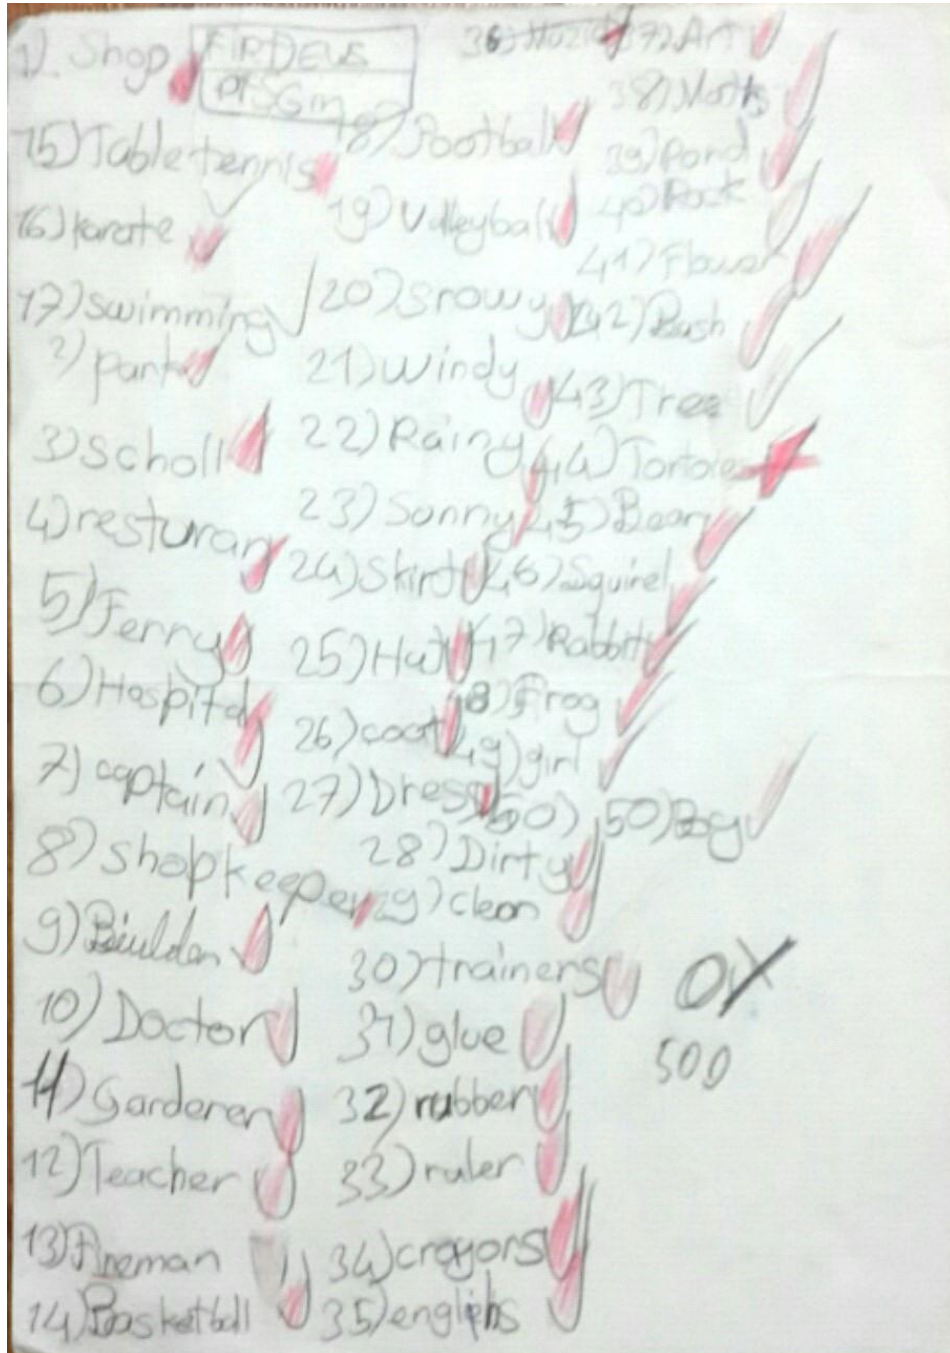 1). Shop
FIRDEUS
15) Table tennis
16) karate
17) swimming
2) park
3) scholl
4) resturan
5) Ferry
6) Hospital
7) captain
8) shopkeeper
9) Biulder
10) Doctor
11) Garderer
12) Teacher
13) Fireman
14) Basketball
18) Football
19) Volleyball
20) snowy
21) windy
22) Rainy
23) Sonny
24) Skirt
25) Hat
26) coat
27) Dress
28) Dirty
29) clean
30) trainers
31) glue
32) rubber
33) ruler
34) crayons
35) englihs
36)
37) Art
38) Maths
39) pond
40) Rock
41) Flower
42) Bush
43) Tree
44) Tortoies
45) Bear
46) Squirel
47) Rabbit
48) Frog
49) girl
50) 50) Boy
500